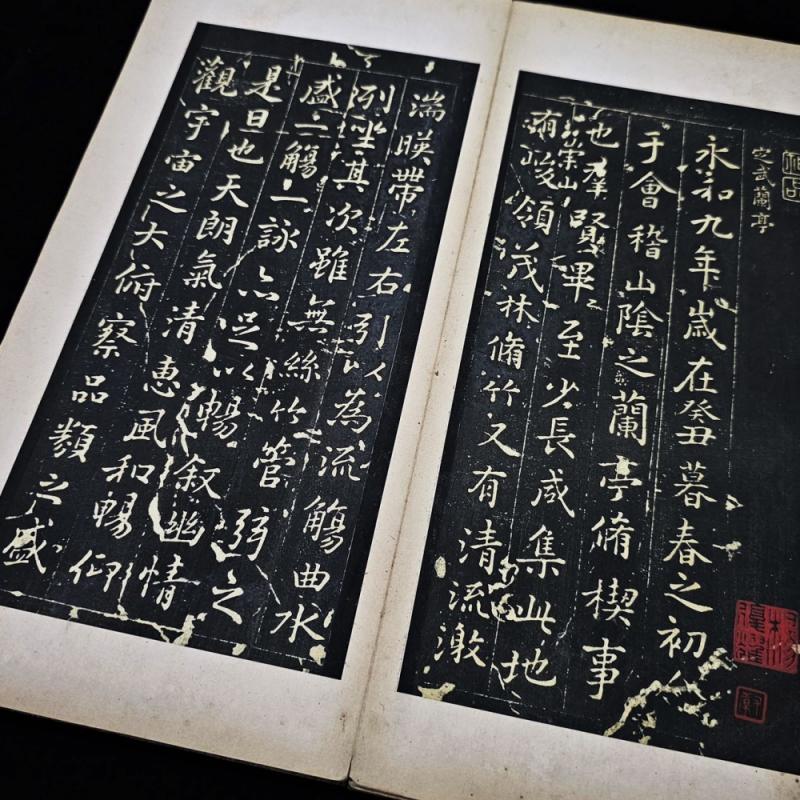 定武蘭亭
永和九年歲在癸丑暮春之初會
于會稽山陰之蘭亭脩稧事
也羣賢畢至少長咸集此地
有崇山峻領茂林脩竹又有清流激
湍暎帶左右引以為流觴曲水
列坐其次雖無絲竹管弦之
盛一觴一詠亦足以暢叙幽情
是日也天朗氣清惠風和暢仰
觀宇宙之大俯察品類之盛